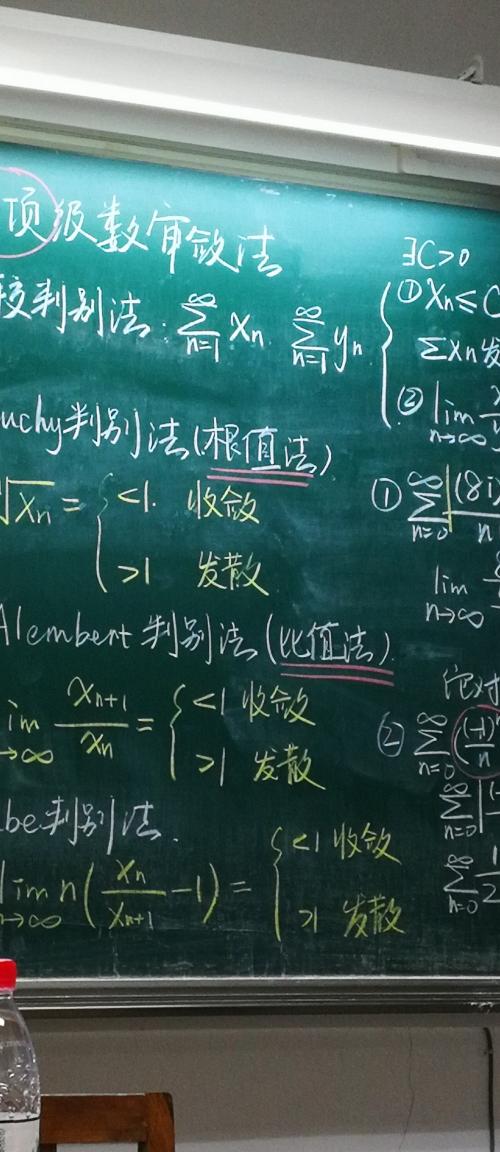 项级数审敛法
较判别法: ∑_{n=1}^{∞} x_n ∑_{n=1}^{∞} y_n
uchy判别法(根值法)
√x_n = { <1. 收敛
>1 发散
Alembert 判别法(比值法).
im_{→∞} x_{n+1}/x_n = { <1 收敛
>1 发散
be判别法.
lim_{n→∞} n(x_n/x_{n+1} - 1) = { <1 收敛
>1 发散
∃C>0
{ ① x_n ≤ C
∑x_n 发
② lim_{n→∞}
① ∑_{n=0}^{∞} |(8i)/n
lim_{n→∞}
② ∑_{n=0}^{∞} (-1)/n
∑_{n=0}^{∞} |(-
∑_{n=0}^{∞} 1/2